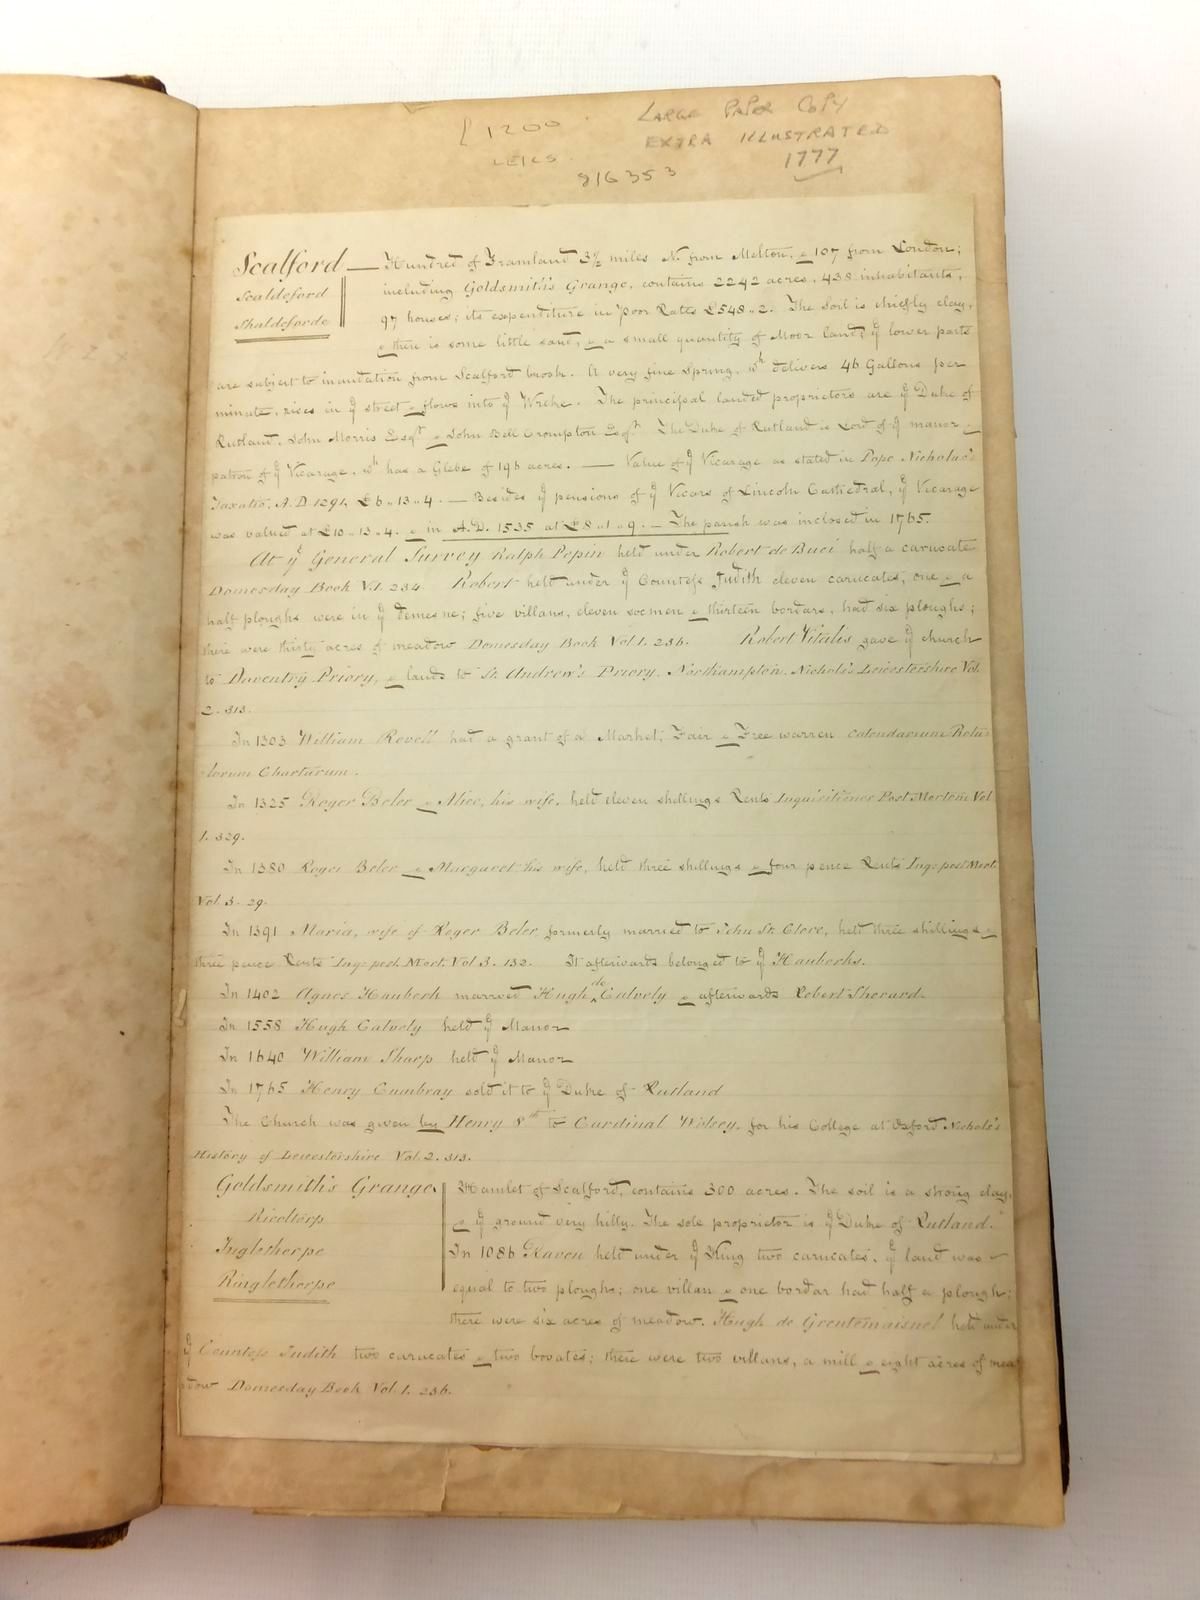 £1200
LARGE PAPER COPY
EXTRA ILLUSTRATED
LEICS.
1777
816353
Scalford — Hundred of Framland 3½ miles N. from Melton, & 107 from London;
Scaldeford
including Goldsmith's Grange, contains 2242 acres, 438 inhabitants,
Shaldeforde
97 houses; its expenditure in Poor Rates £548..2. The Soil is chiefly clay,
& there is some little sand, & a small quantity of Moor land; ye lower parts
are subject to inundation from Scalford brook. A very fine Spring, wh delivers 46 Gallons per
minute, rises in ye street & flows into ye Wreke. The principal landed proprietors are ye Duke of
Rutland, John Morris Esqr & John Bell Crompton Esqr. The Duke of Rutland is Lord of ye manor &
patron of ye Vicarage, wh has a Glebe of 196 acres. — Value of ye Vicarage as stated in Pope Nicholas's
Taxatio, A.D. 1291, £6..13..4. — Besides ye pensions of ye Vicars of Lincoln Cathedral, ye Vicarage
was valued at £10..13..4. & in A.D. 1535 at £8..1..9. — The parish was inclosed in 1765.
At ye General Survey Ralph Pepin held under Robert de Buci half a carucate
Domesday Book V.1. 234. Robert held under ye Countess Judith eleven carucates, one & a
half ploughs were in ye demesne; five villans, eleven socmen & thirteen bordars, had six ploughs;
there were thirty acres of meadow Domesday Book Vol. 1. 236. Robert Vitalis gave ye church
to Daventry Priory, & lands to St. Andrew's Priory, Northampton. Nichols's Leicestershire Vol.
2. 313.
In 1303 William Revell had a grant of a Market, Fair & Free warren Calendarium Rotu-
lorum Chartarum.
In 1325 Roger Beler & Alice, his wife, held eleven shillings Rents Inquisitiones Post Mortem Vol
1. 329.
In 1380 Roger Beler & Margaret his wife, held three shillings & four pence Rents Inq: post Mort.
Vol. 3. 29.
In 1391 Maria, wife of Roger Beler, formerly married to John St. Clere, held three shillings &
three pence Rents Inq: post Mort. Vol 3. 132. It afterwards belonged to ye Hauberks.
In 1402 Agnes Hauberk married Hugh de Calvely & afterwards Robert Sherard.
In 1558 Hugh Calvely held ye Manor
In 1640 William Sharp held ye Manor
In 1765 Henry Cumbray sold it to ye Duke of Rutland
The Church was given by Henry 8th to Cardinal Wolsey, for his College at Oxford Nichols's
History of Leicestershire Vol. 2. 313.
Goldsmith's Grange, Hamlet of Scalford, contains 300 acres. The soil is a strong clay,
Ricoltorp
& ye ground very hilly. The sole proprietor is ye Duke of Rutland.
Inglethorpe
In 1086 Raven held under ye King two carucates, ye land was
Ringlethorpe
equal to two ploughs; one villan & one bordar had half a plough;
there were six acres of meadow. Hugh de Grentemaisnel held under
ye Countess Judith two carucates & two bovates; there were two villans, a mill & eight acres of mea
dow Domesday Book Vol. 1. 236.